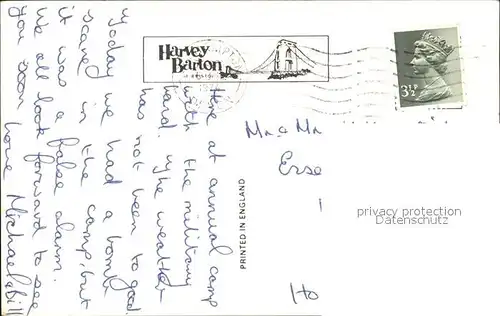 Harvey
Barton
3½P
Here at annual camp
with the military
band. The weather
has not been to good.
Today we had a bomb
scare in the camp, but
it was a false alarm.
We all look forward to see
you soon love Michael & Bill
Mr & Mr
Erse
Ho
PRINTED IN ENGLAND
privacy protection
Datenschutz